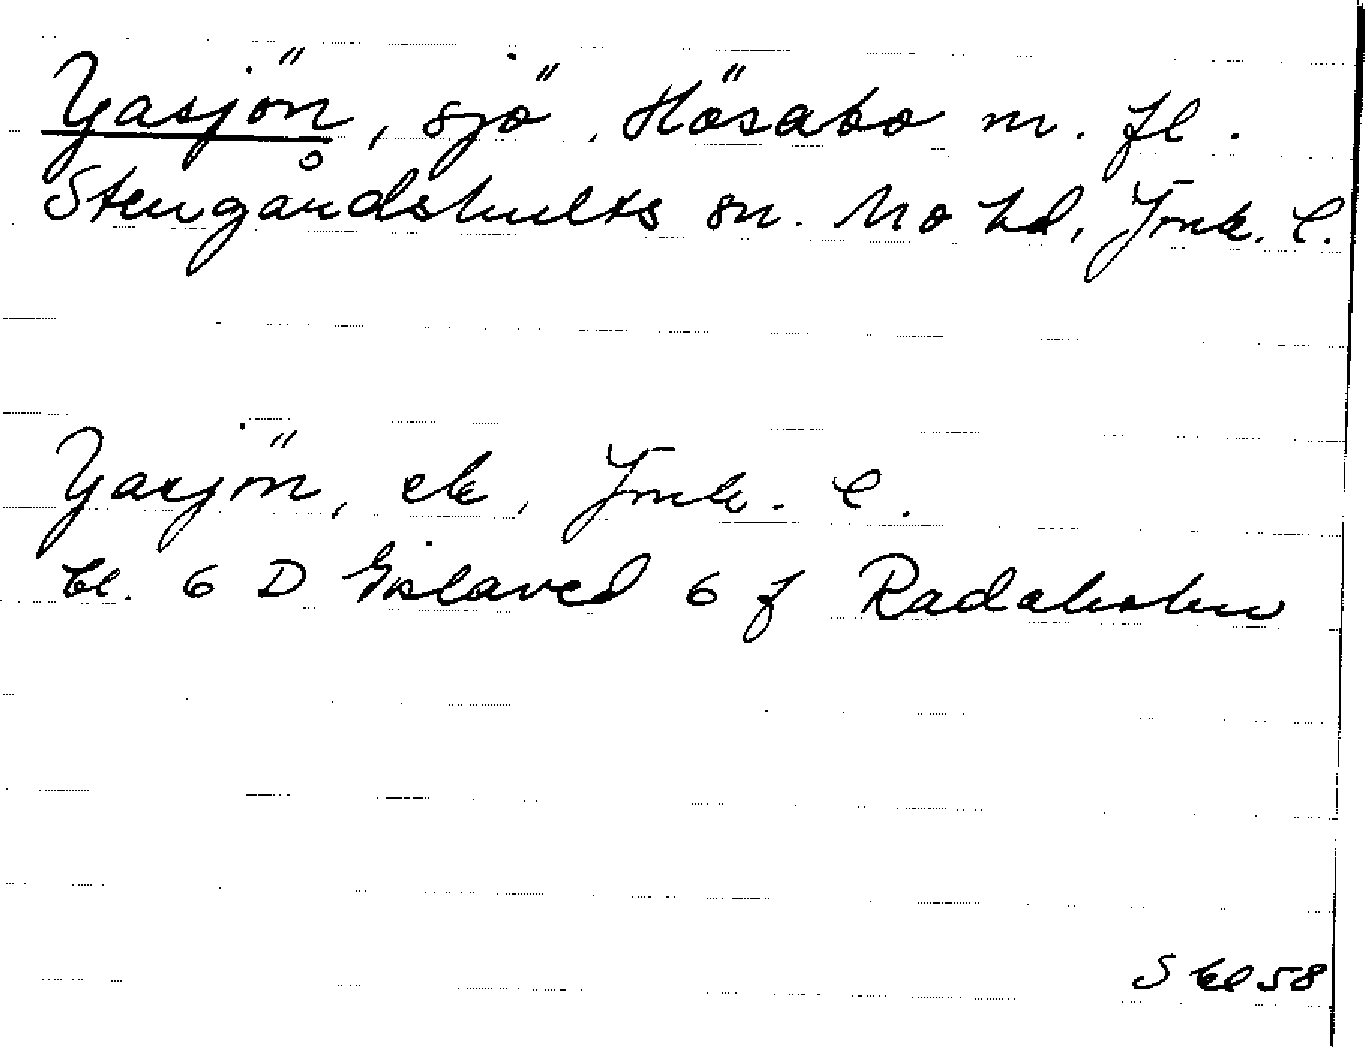 Yasjön, sjö, Hösabo m. fl.
Stengårdshults sn. Mo hd, Jönk. l.
Yasjön, ek, Jönk. l.
bl. 6 D Gislaved 6 f Radaholm
S bl 58